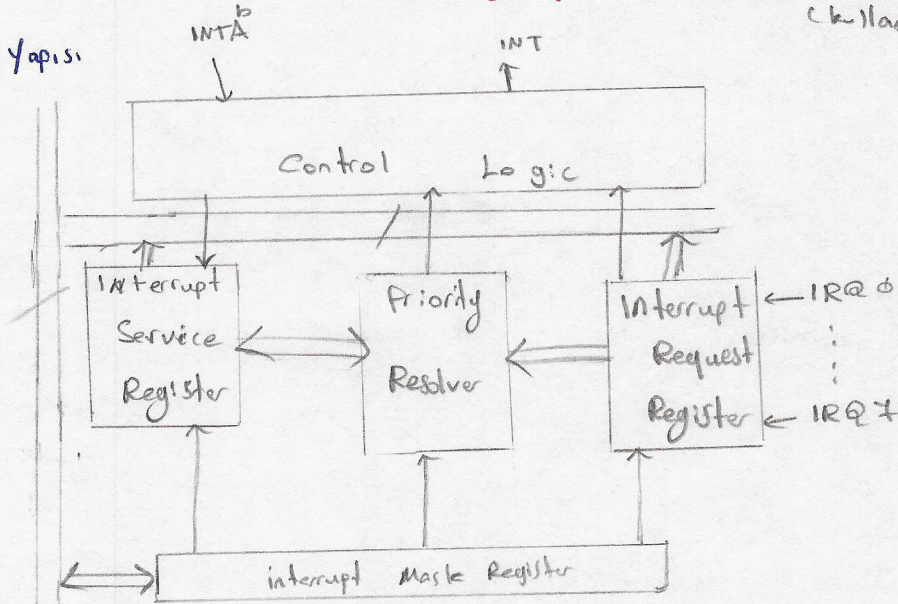 Yapısı
INTA b
INT
Control Logic
Interrupt
Service
Register
Priority
Resolver
Interrupt
Request
Register
IRQ 0
IRQ 7
interrupt Mask Register